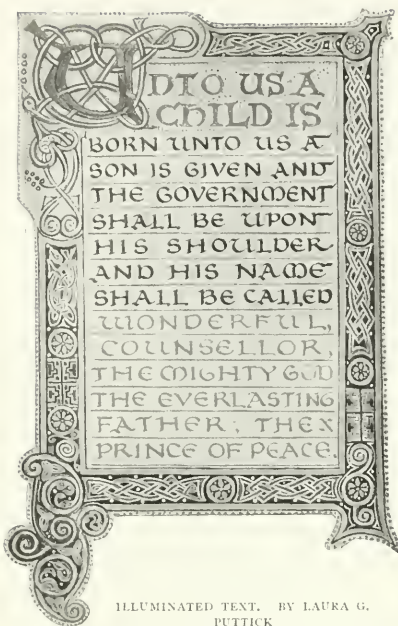 UNTO US A
CHILD IS
BORN UNTO US A
SON IS GIVEN AND
THE GOVERNMENT
SHALL BE UPON
HIS SHOULDER
AND HIS NAME
SHALL BE CALLED
WONDERFUL,
COUNSELLOR,
THE MIGHTY GOD
THE EVERLASTING
FATHER, THE
PRINCE OF PEACE.
ILLUMINATED TEXT. BY LAURA G.
PUTTICK